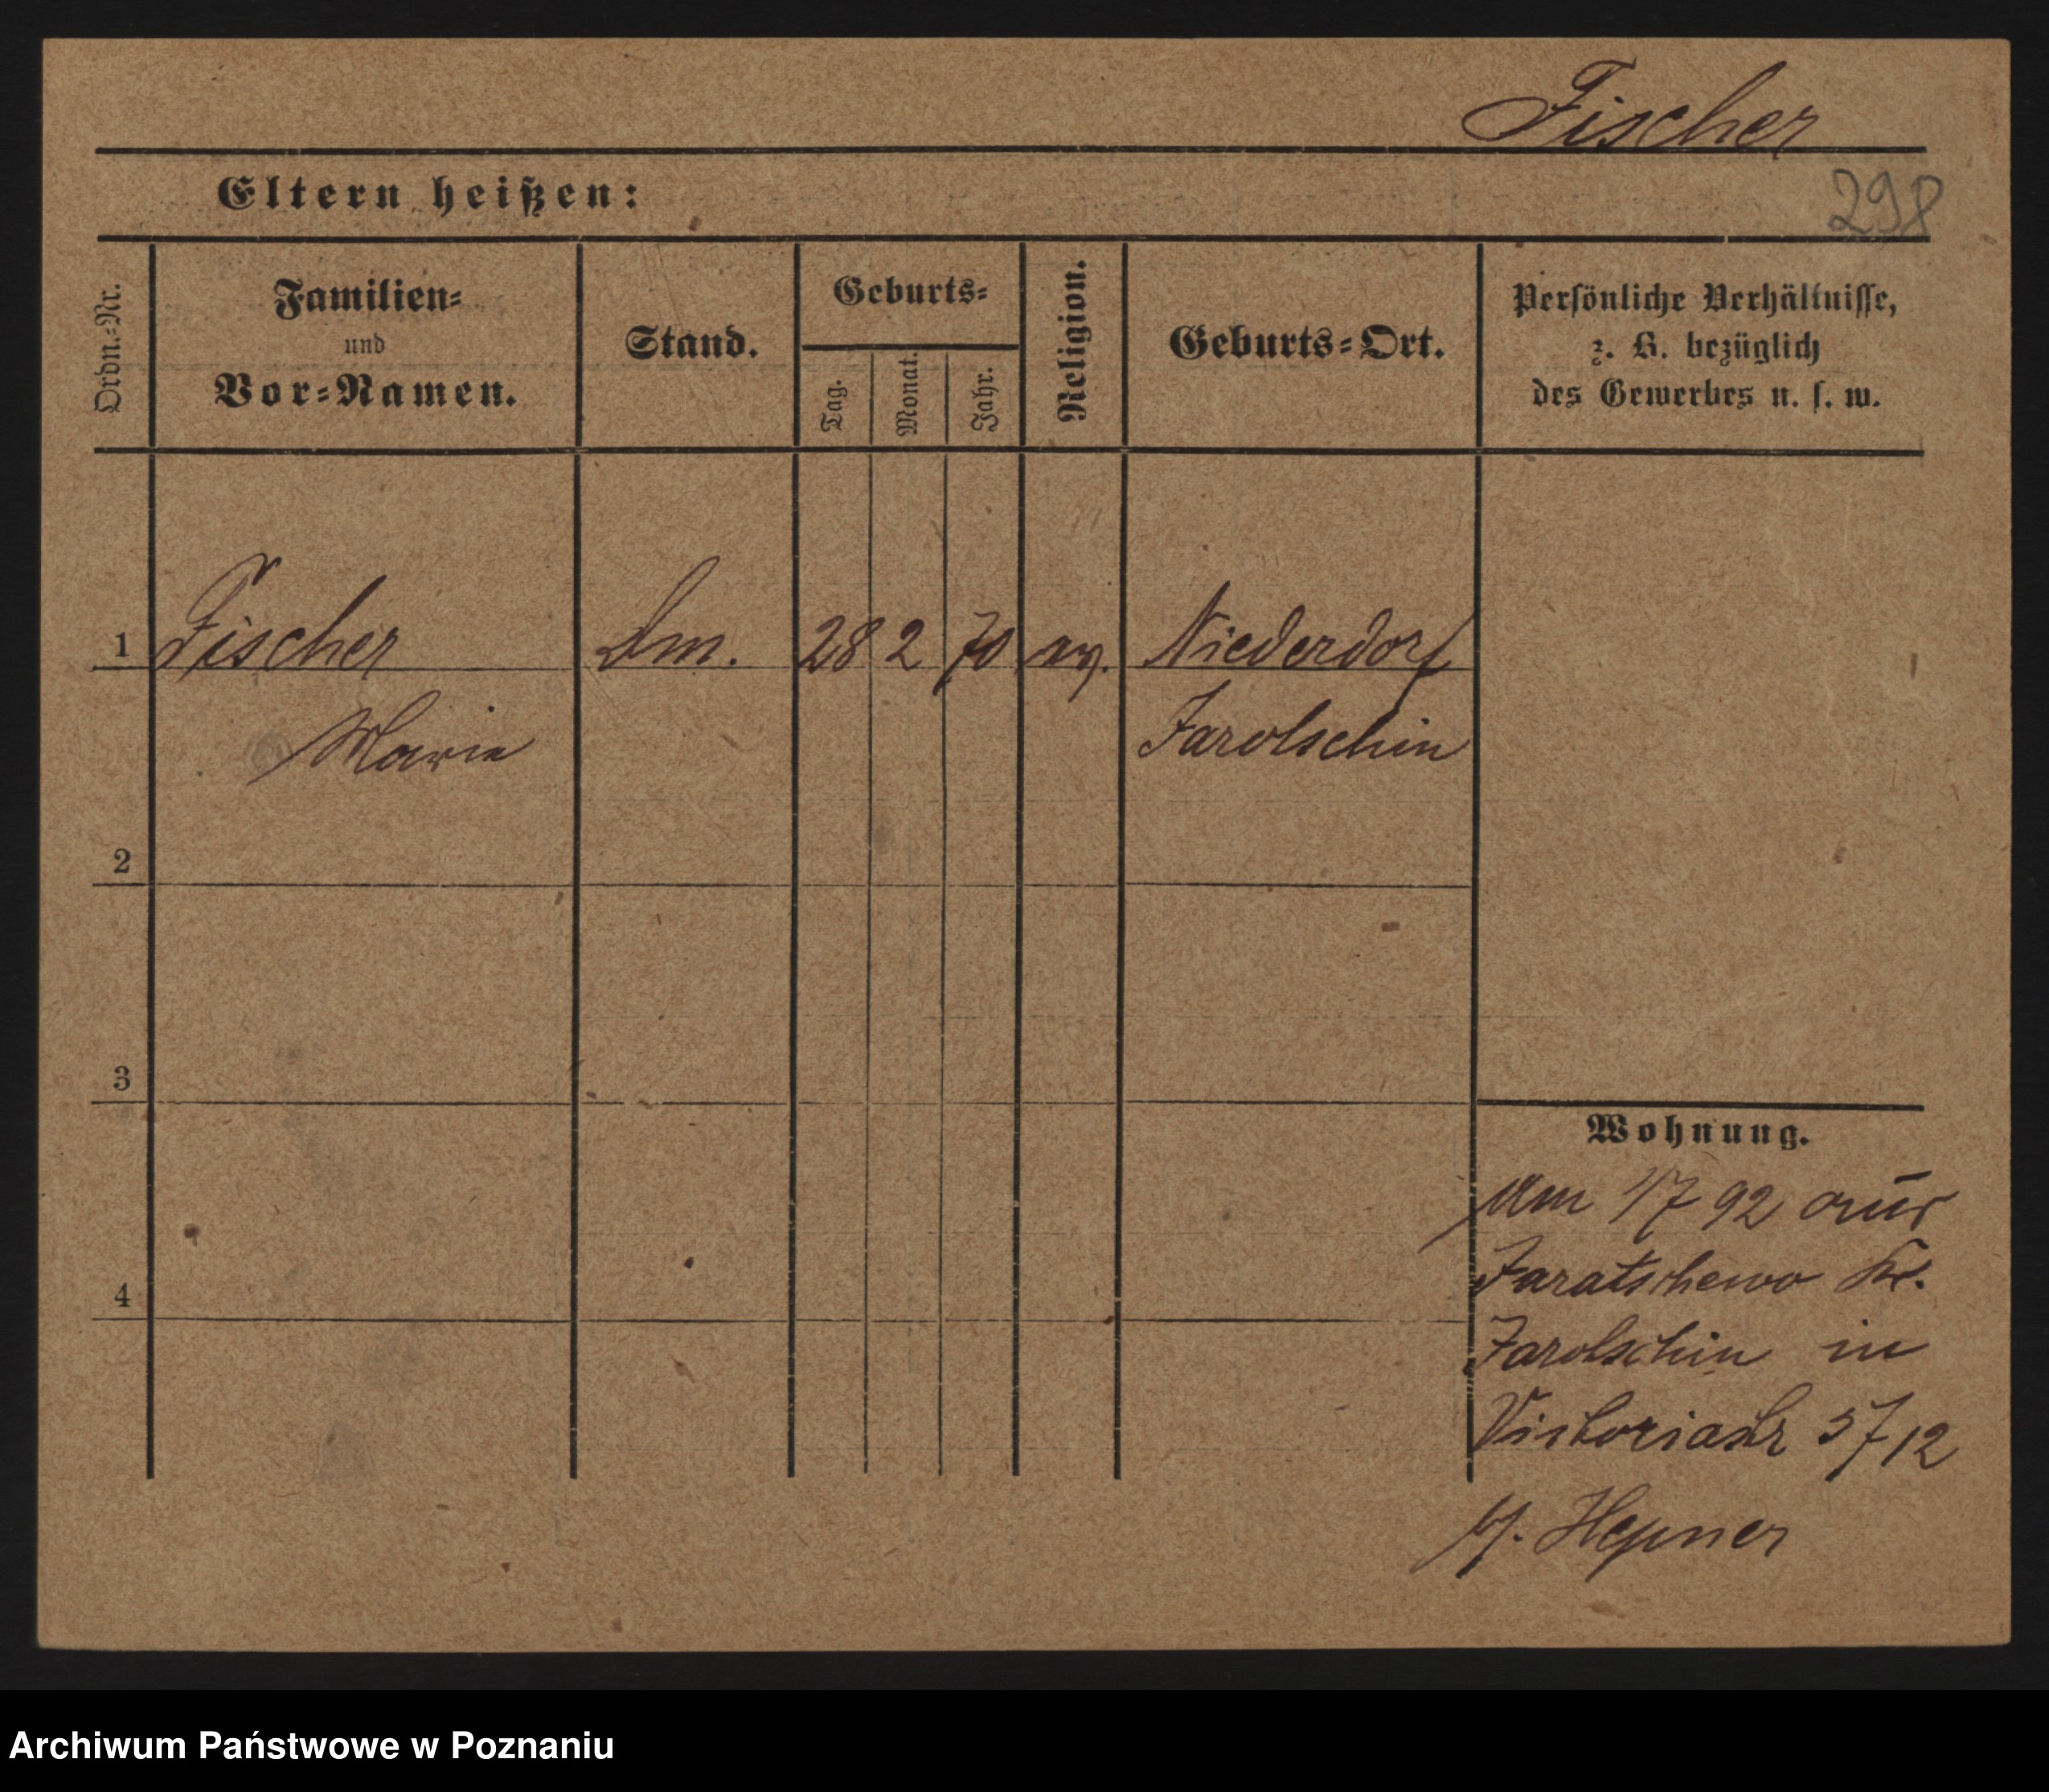 Fischer
298
Eltern heißen:
Ordn.=Nr.
Familien=
und
Vor=Namen.
Stand.
Geburts=
Tag.
Monat.
Jahr.
Religion.
Geburts=Ort.
Persönliche Verhältnisse,
z. B. bezüglich
des Gewerbes u. s. w.
1 Fischer 28 2 70 ev. Niederdorf
Marie Jarotschin
2
3
4
Wohnung.
Am 92 aus
Jaratschewo Kr.
Jarotschin in
Victoriastr
Hepner
Archiwum Państwowe w Poznaniu